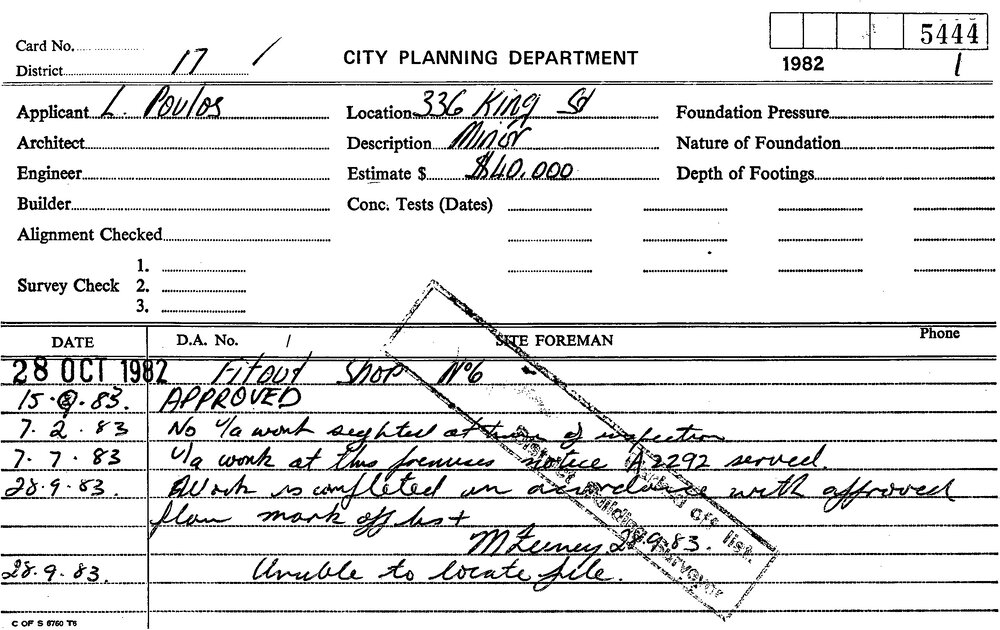 5444
Card No.
District 17 /
CITY PLANNING DEPARTMENT
1982
1
Applicant L. Poulos
Location 336 King St
Foundation Pressure
Architect
Description Minor
Nature of Foundation
Engineer
Estimate $ $40,000
Depth of Footings
Builder
Conc. Tests (Dates)
Alignment Checked
Survey Check
1.
2.
3.
DATE
D.A. No. /
SITE FOREMAN
Phone
28 OCT 1982 Fitout Shop No 6
15. .83. APPROVED
7. 2. 83 No u/a work seighted at time of inspection
7. 7. 83 u/a work at this premises notice A2292 served.
28.9.83. Work is completed in accordance with approved
plan mark off list
28.9.83.
28.9.83. Unable to locate file.
Marked off list
District Building Surveyor
C OF S 8760 T6